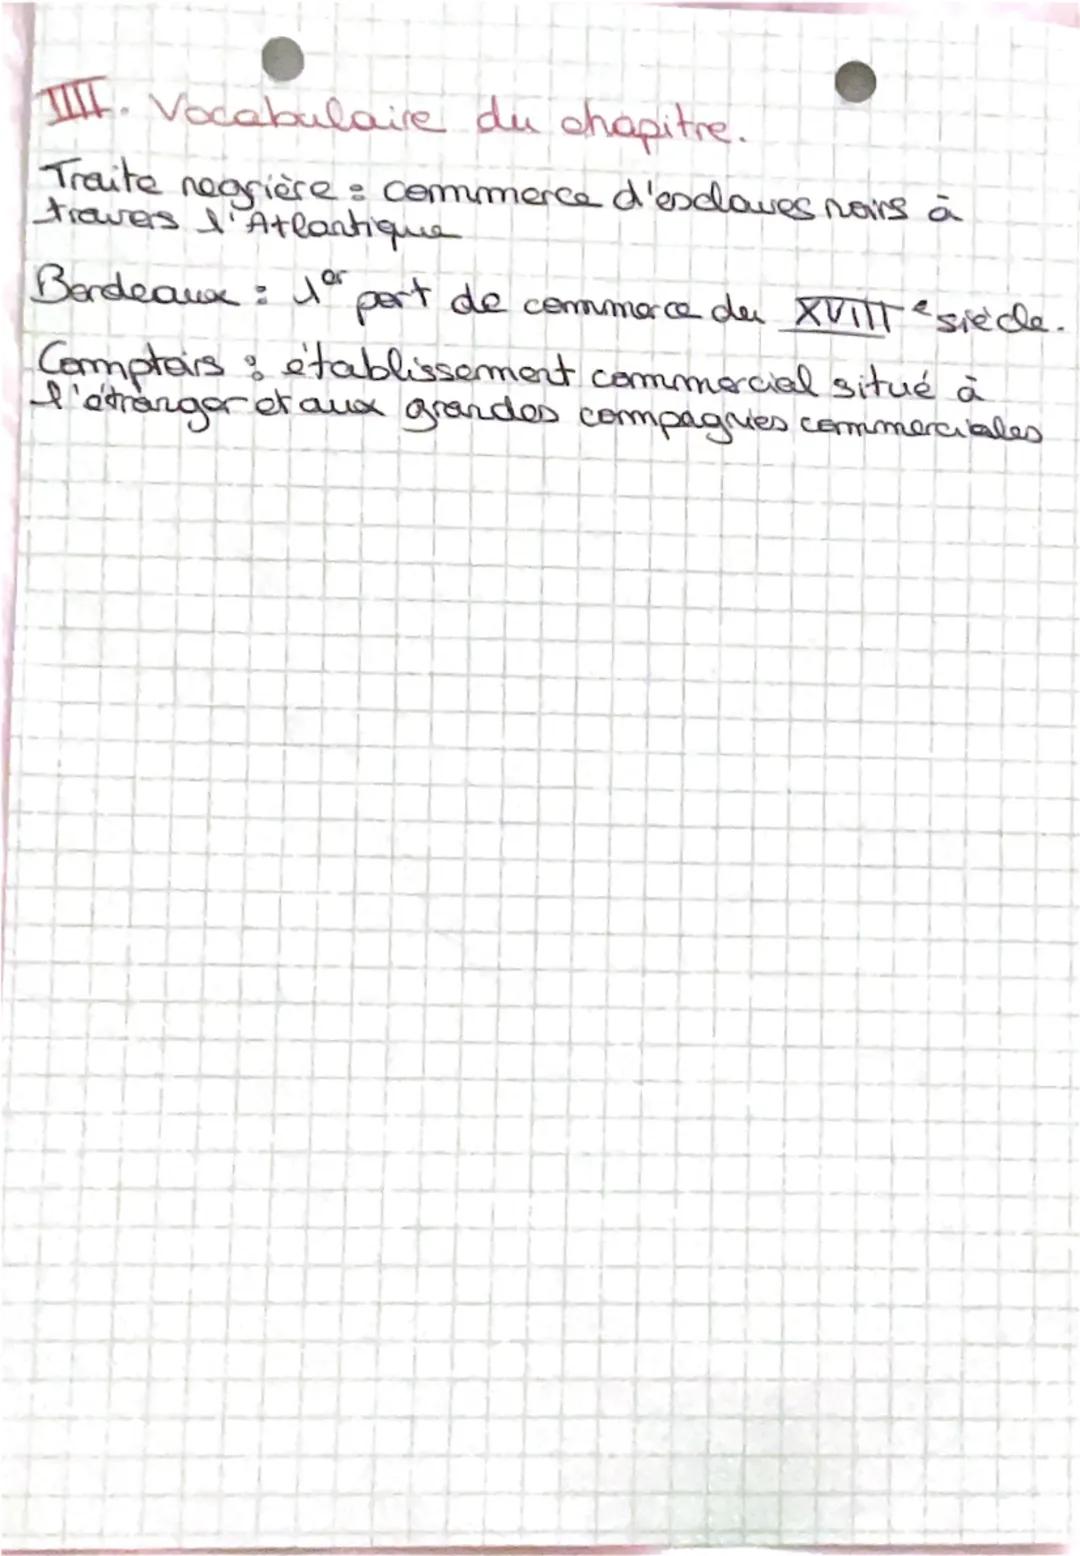 IIII. Vocabulaire du chapitre.
Traite negrière : commerce d'esclaves noirs à
travers l'Atlantique
Bordeaux : 1er port de commerce du XVIIIe siècle.
Comptoirs : établissement commercial situé à
l'étranger et aux grandes compagnies commerciales